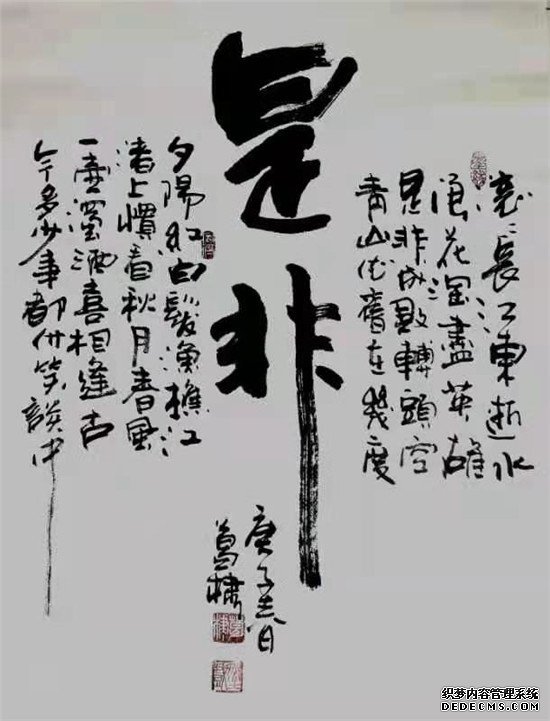 是非
滚滚長江東逝水
浪花淘盡英雄
是非成敗轉頭空
青山依舊在幾度
夕陽紅白髮漁樵江
渚上慣看秋月春風
一壺濁酒喜相逢古
今多少事都付笑談中
庚子春日
葛棣
织梦内容管理系统
DEDECMS.COM